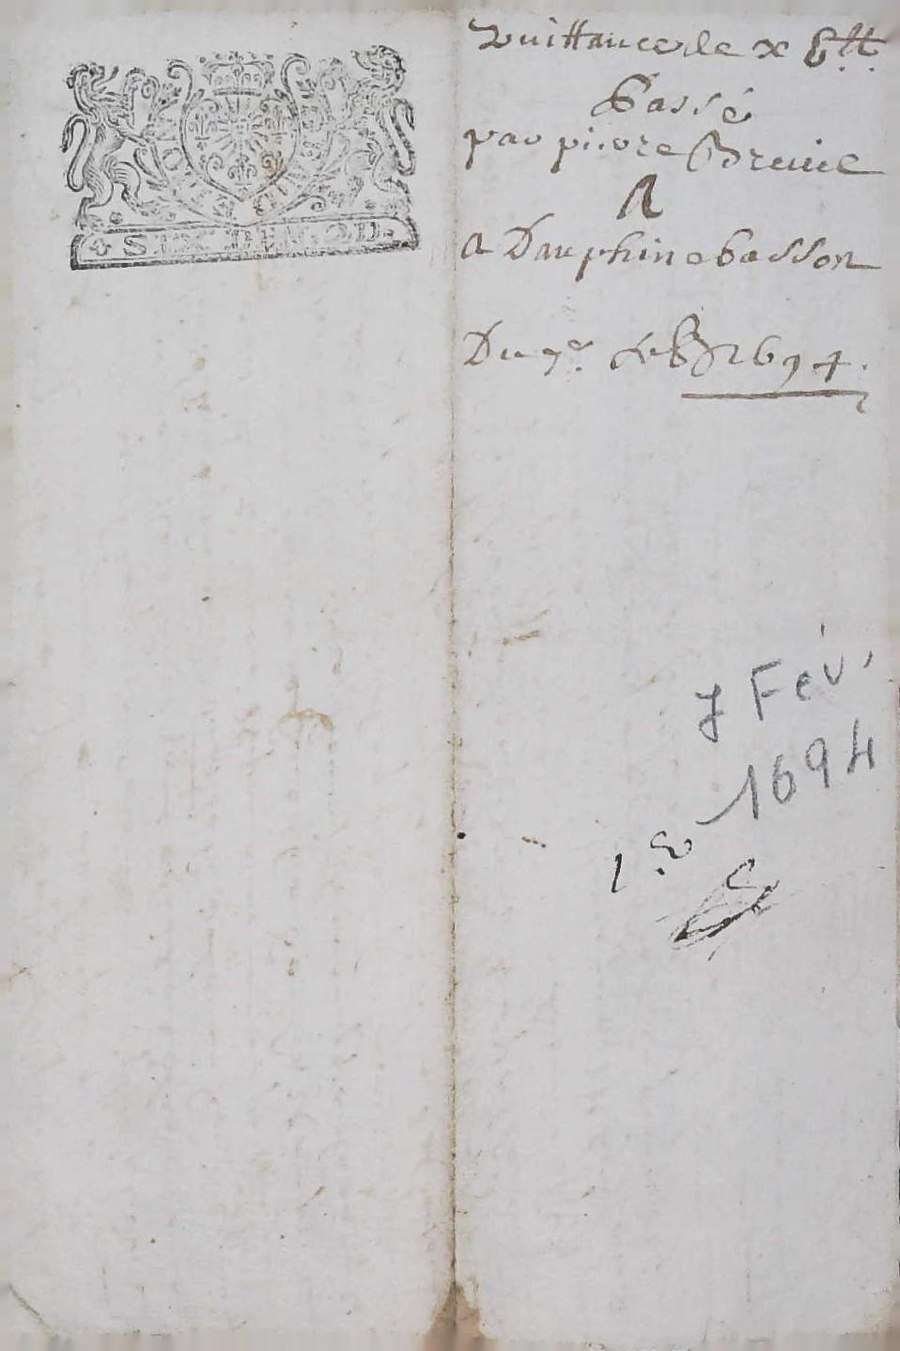 SIX DEN. OB.
Quittance de x Ltt
Passé
par pierre Breuil
A
a Dauphine basson
Du 7e febr 1694.
7 Fév.
1694
1ere